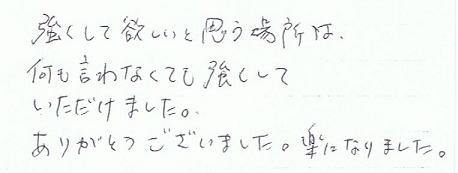 強くして欲しいと思う場所は、
何も言わなくても強くして
いただけました。
ありがとうございました。楽になりました。